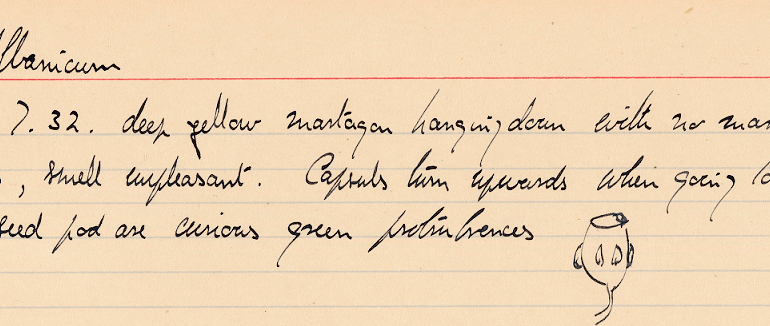 Albanicum
7. 32. deep yellow martagon hanging down with no mar
, smell unpleasant. Capsuls turn upwards when going
seed pod are curious green protruberences